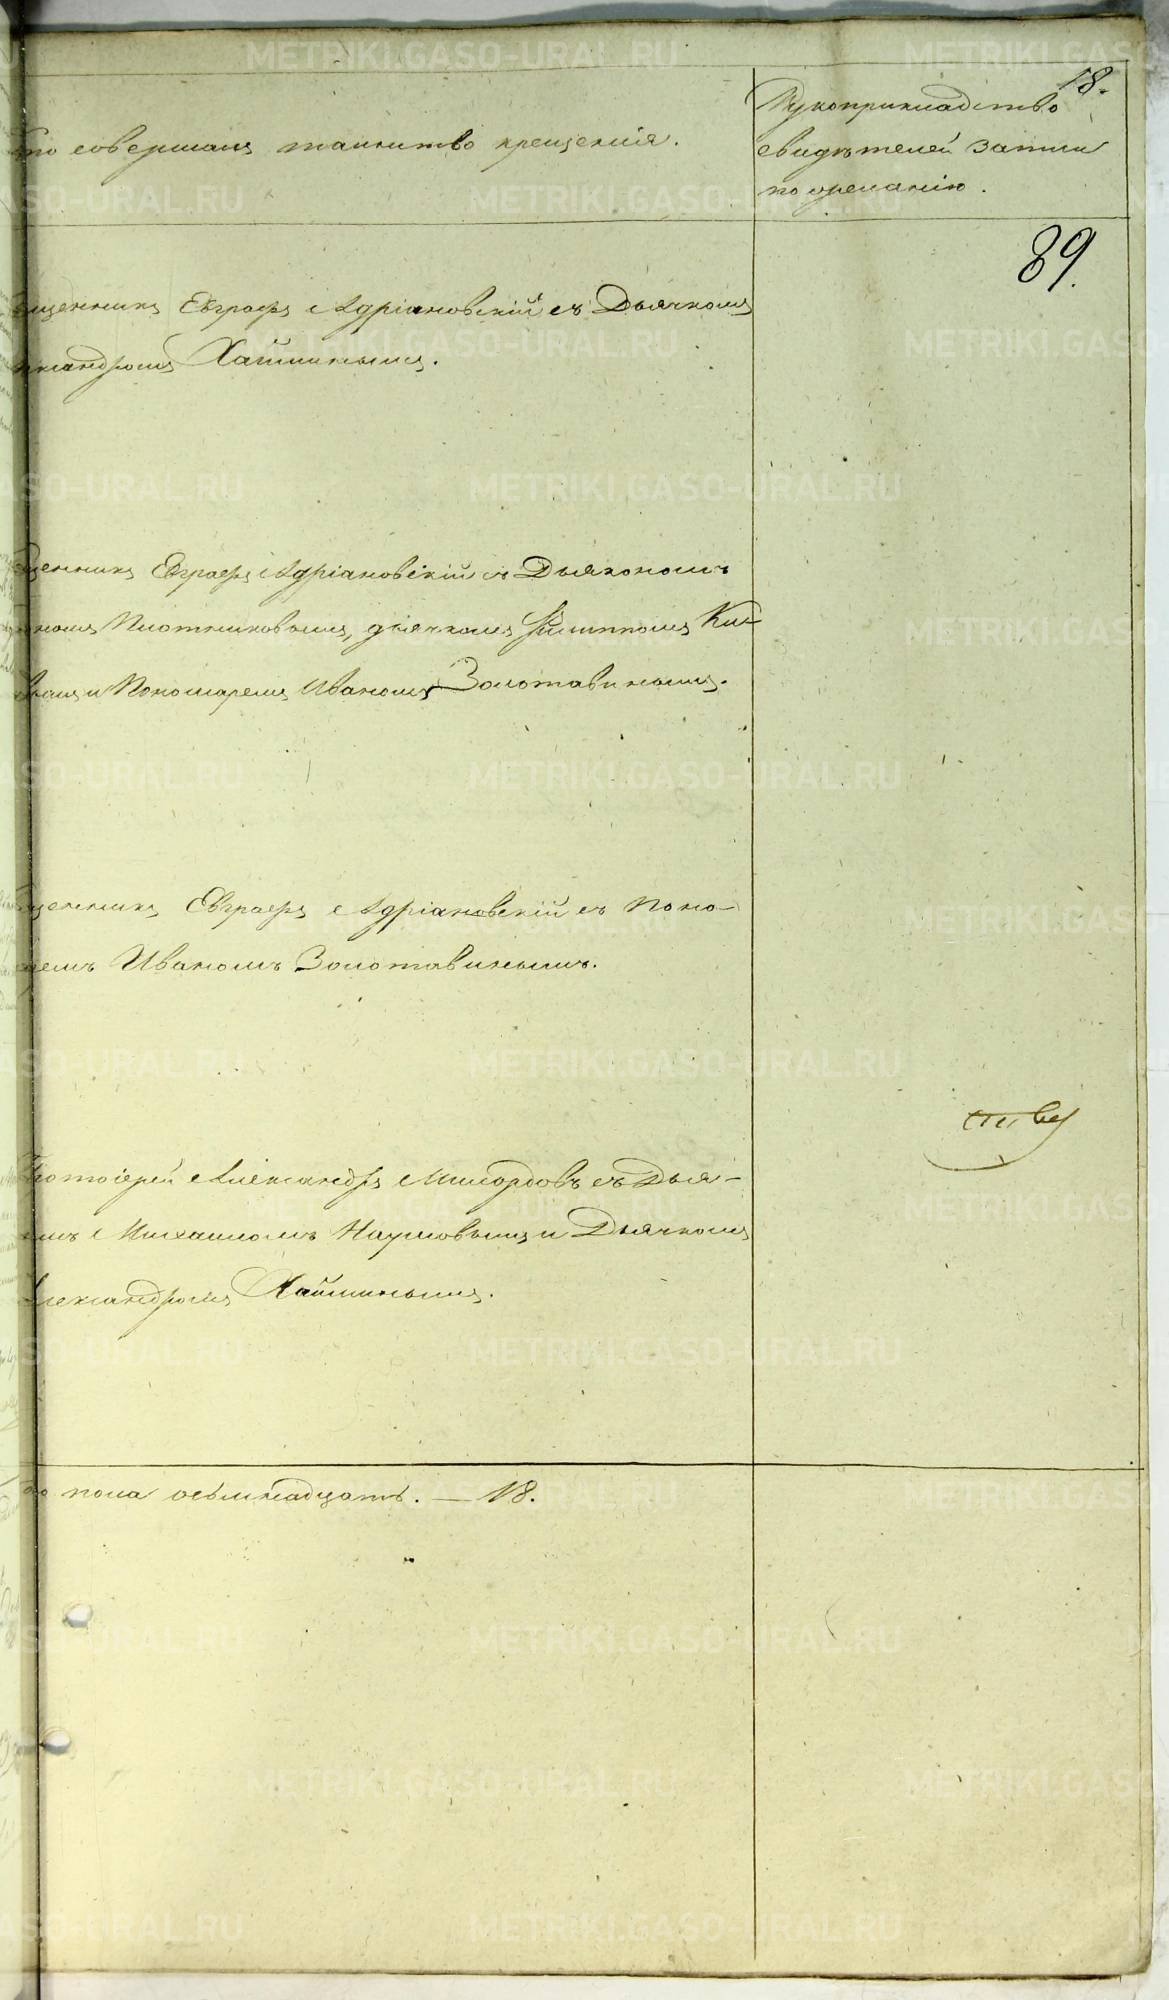 18.
Рукоприкладство
то совершалъ таинство крещенія.
свидѣтелей записи
по желанію.
89.
щенникъ Евграфъ Адріановскій съ Дьячкомъ
ександромъ Хайминымъ.
щенникъ Евграфъ Адріановскій съ Дьякономъ
номъ Плотниковымъ, дьячкомъ Филиппомъ Ки-
вымъ и Пономаремъ Иваномъ Золотавинымъ.
щенникъ Евграфъ Адріановскій съ Поно-
емъ Иваномъ Золотавинымъ.
ротоіерей Александръ Милордовъ съ Дья-
омъ Михаиломъ Наумовымъ и Дьячкомъ
лександромъ Хайминымъ.
го пола осьмнадцать. — 18.